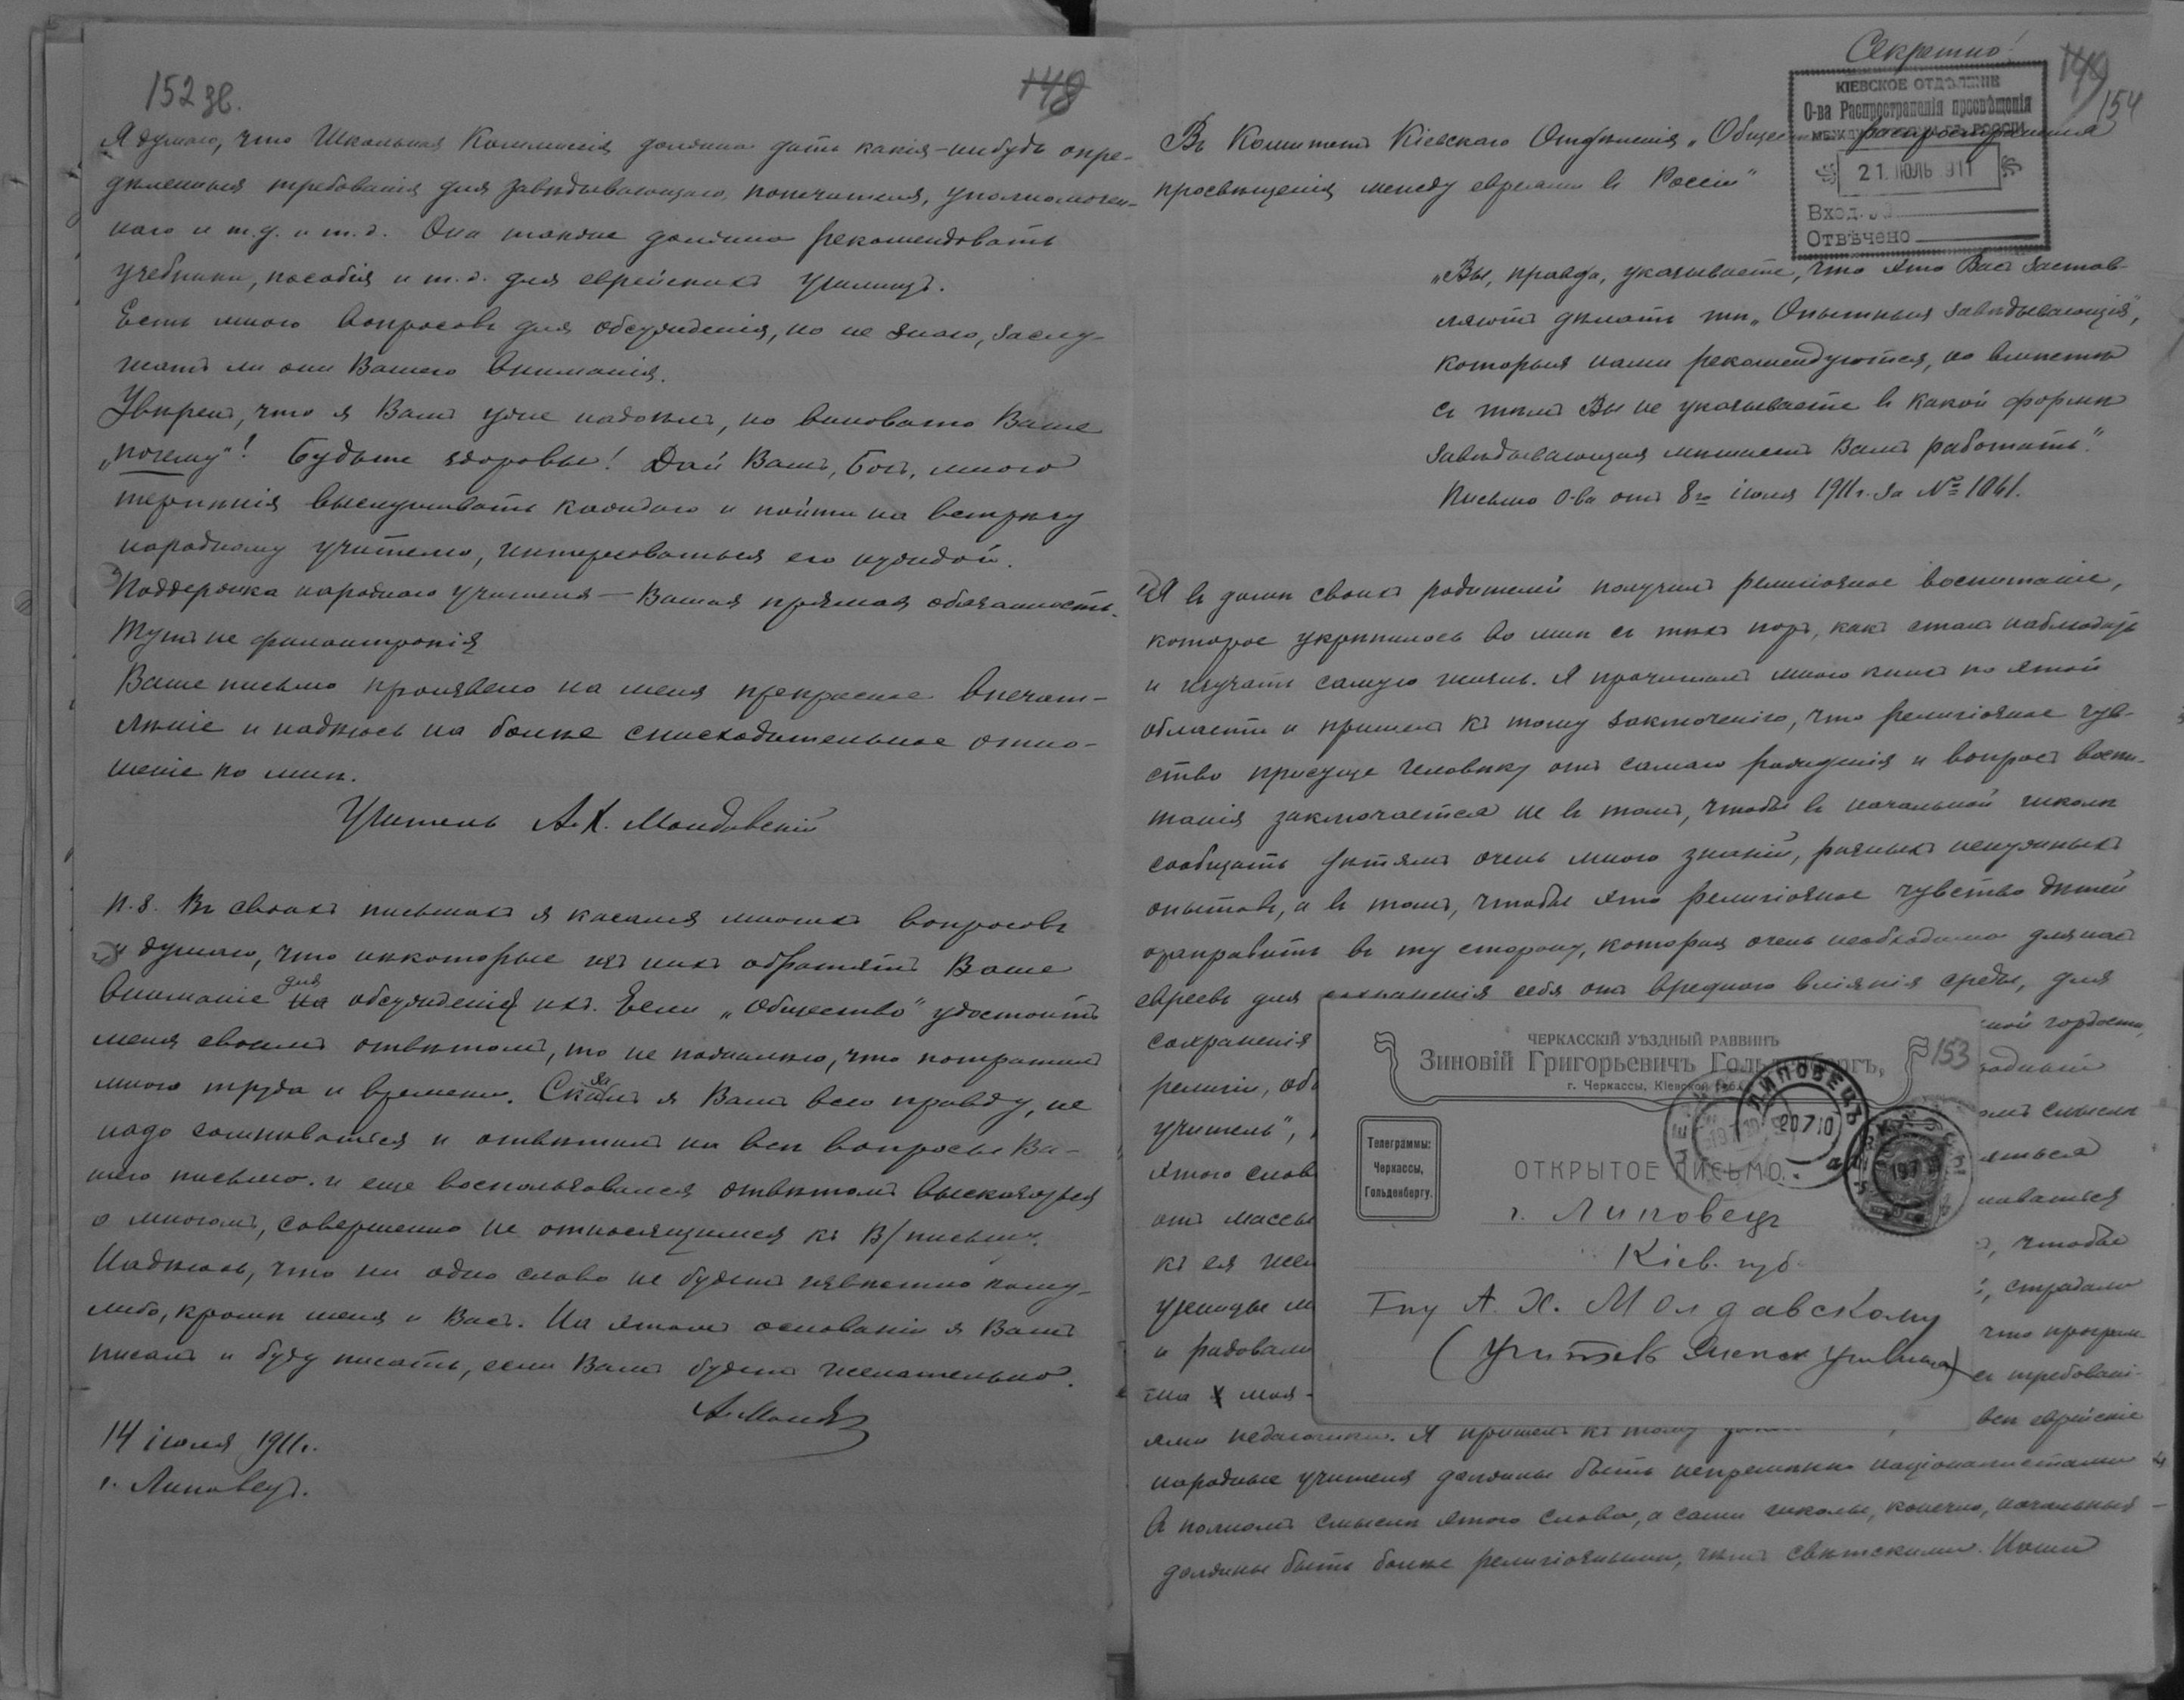 152 зв.
148
Я думаю, что Школьная Коммиссія должна дать какія-нибудь опре-
дѣленныя требованія для завѣдывающаго, попечителя, уполномочен-
наго и т.д. и т.д. Она также должна рекомендовать
учебники, пособія и т.д. для еврейскихъ училищъ.
Есть много вопросовъ для обсужденія, но не знаю, заслу-
жатъ ли они Вашего вниманія.
Увѣренъ, что я Вамъ уже надоѣлъ, но виновато Ваше
„почему"! Будьте здоровы! Дай Вамъ, Богъ, много
терпѣнія выслушивать каждаго и пойти на встрѣчу
народному учителю, интересоваться его нуждой.
Поддержка народнаго учителя — Ваша прямая обязанность.
Тутъ не филантропія
Ваше письмо произвело на меня прекрасное впечат-
лѣніе и надѣюсь на болѣе снисходительное отно-
шеніе ко мнѣ.
Учитель А.Х. Молдавскій
P.S. Въ своихъ письмахъ я касался многихъ вопросовъ
и думаю, что нѣкоторые изъ нихъ обратятъ Ваше
вниманіе для обсужденія ихъ. Если „Общество" удостоитъ
меня своимъ отвѣтомъ, то не пожалѣю, что потратилъ
много труда и времени. Сказалъ я Вамъ всю правду, не
надо сомнѣваться и отвѣтилъ на всѣ вопросы Ва-
шего письма. и еще воспользовался отвѣтомъ высказаться
о многомъ, совершенно не относящимся къ В/письму.
Надѣюсь, что ни одно слово не будетъ извѣстно кому-
либо, кромѣ меня и Васъ. На этомъ основаніи я Вамъ
писалъ и буду писать, если Вамъ будетъ желательно.
А. Молд
14 іюля 1911г.
г. Липовецъ.
Секретно!
149
154
КІЕВСКОЕ ОТДѢЛЕНІЕ
О-ва Распространенія просвѣщенія
МЕЖДУ ЕВРЕЯМИ ВЪ РОССІИ
21. ІЮЛЬ 911
Вход. №
Отвѣчено
Въ Комитетъ Кіевскаго Отдѣленія „Общества распространенія
просвѣщенія между евреями въ Россіи"
„Вы, правда, указываете, что это Васъ застав-
ляютъ дѣлать тѣ „Опытныя завѣдывающія",
которыя нами рекомендуются, но вмѣстѣ
съ тѣмъ Вы не указываете въ какой формѣ
завѣдывающая мѣшаетъ Вамъ работать."
Письмо О-ва отъ 8го іюля 1911г. за № 1061.
Я въ домѣ своихъ родителей получилъ религіозное воспитаніе,
которое укрѣпилось во мнѣ съ тѣхъ поръ, какъ сталъ наблюдать
и изучать самую жизнь. Я прочиталъ много книгъ по этой
области и пришелъ къ тому заключенію, что религіозное чув-
ство присуще человѣку отъ самаго рожденія и вопросъ воспи-
танія заключается не въ томъ, чтобы въ начальной школѣ
сообщать дѣтямъ очень много знаній, разныхъ ненужныхъ
опытовъ, а въ томъ, чтобы это религіозное чувство дѣтей
направить въ ту сторону, которая очень необходима для насъ
евреевъ для сохраненія себя отъ вреднаго вліянія среды, для
сохраненія
ной гордости,
религіи, об
учитель",
омъ смыслѣ
этого слов
яться
отъ массы
наваться
къ ея жел
, чтобы
, страдали
и радовали
что програм-
ма моя
съ требовані-
ями педагогики. Я пришелъ къ тому
всѣ еврейскіе
народные учителя должны быть непремѣнно націоналистами
въ полномъ смыслѣ этого слова, а сами школы, конечно, начальныя
должны быть болѣе религіозными, чѣмъ свѣтскими. Наши
153
ЧЕРКАССКІЙ УѢЗДНЫЙ РАВВИНЪ
Зиновій Григорьевичъ Гольденбергъ,
г. Черкассы, Кіевской губ.
Телеграммы:
Черкассы,
Гольденбергу.
ОТКРЫТОЕ ПИСЬМО.
ЛИПОВЕЦЪ
20 7 10
г. Липовецъ
Кіев. губ.
Гну А. Х. Молдавскому
(Учитель Женск Училища)